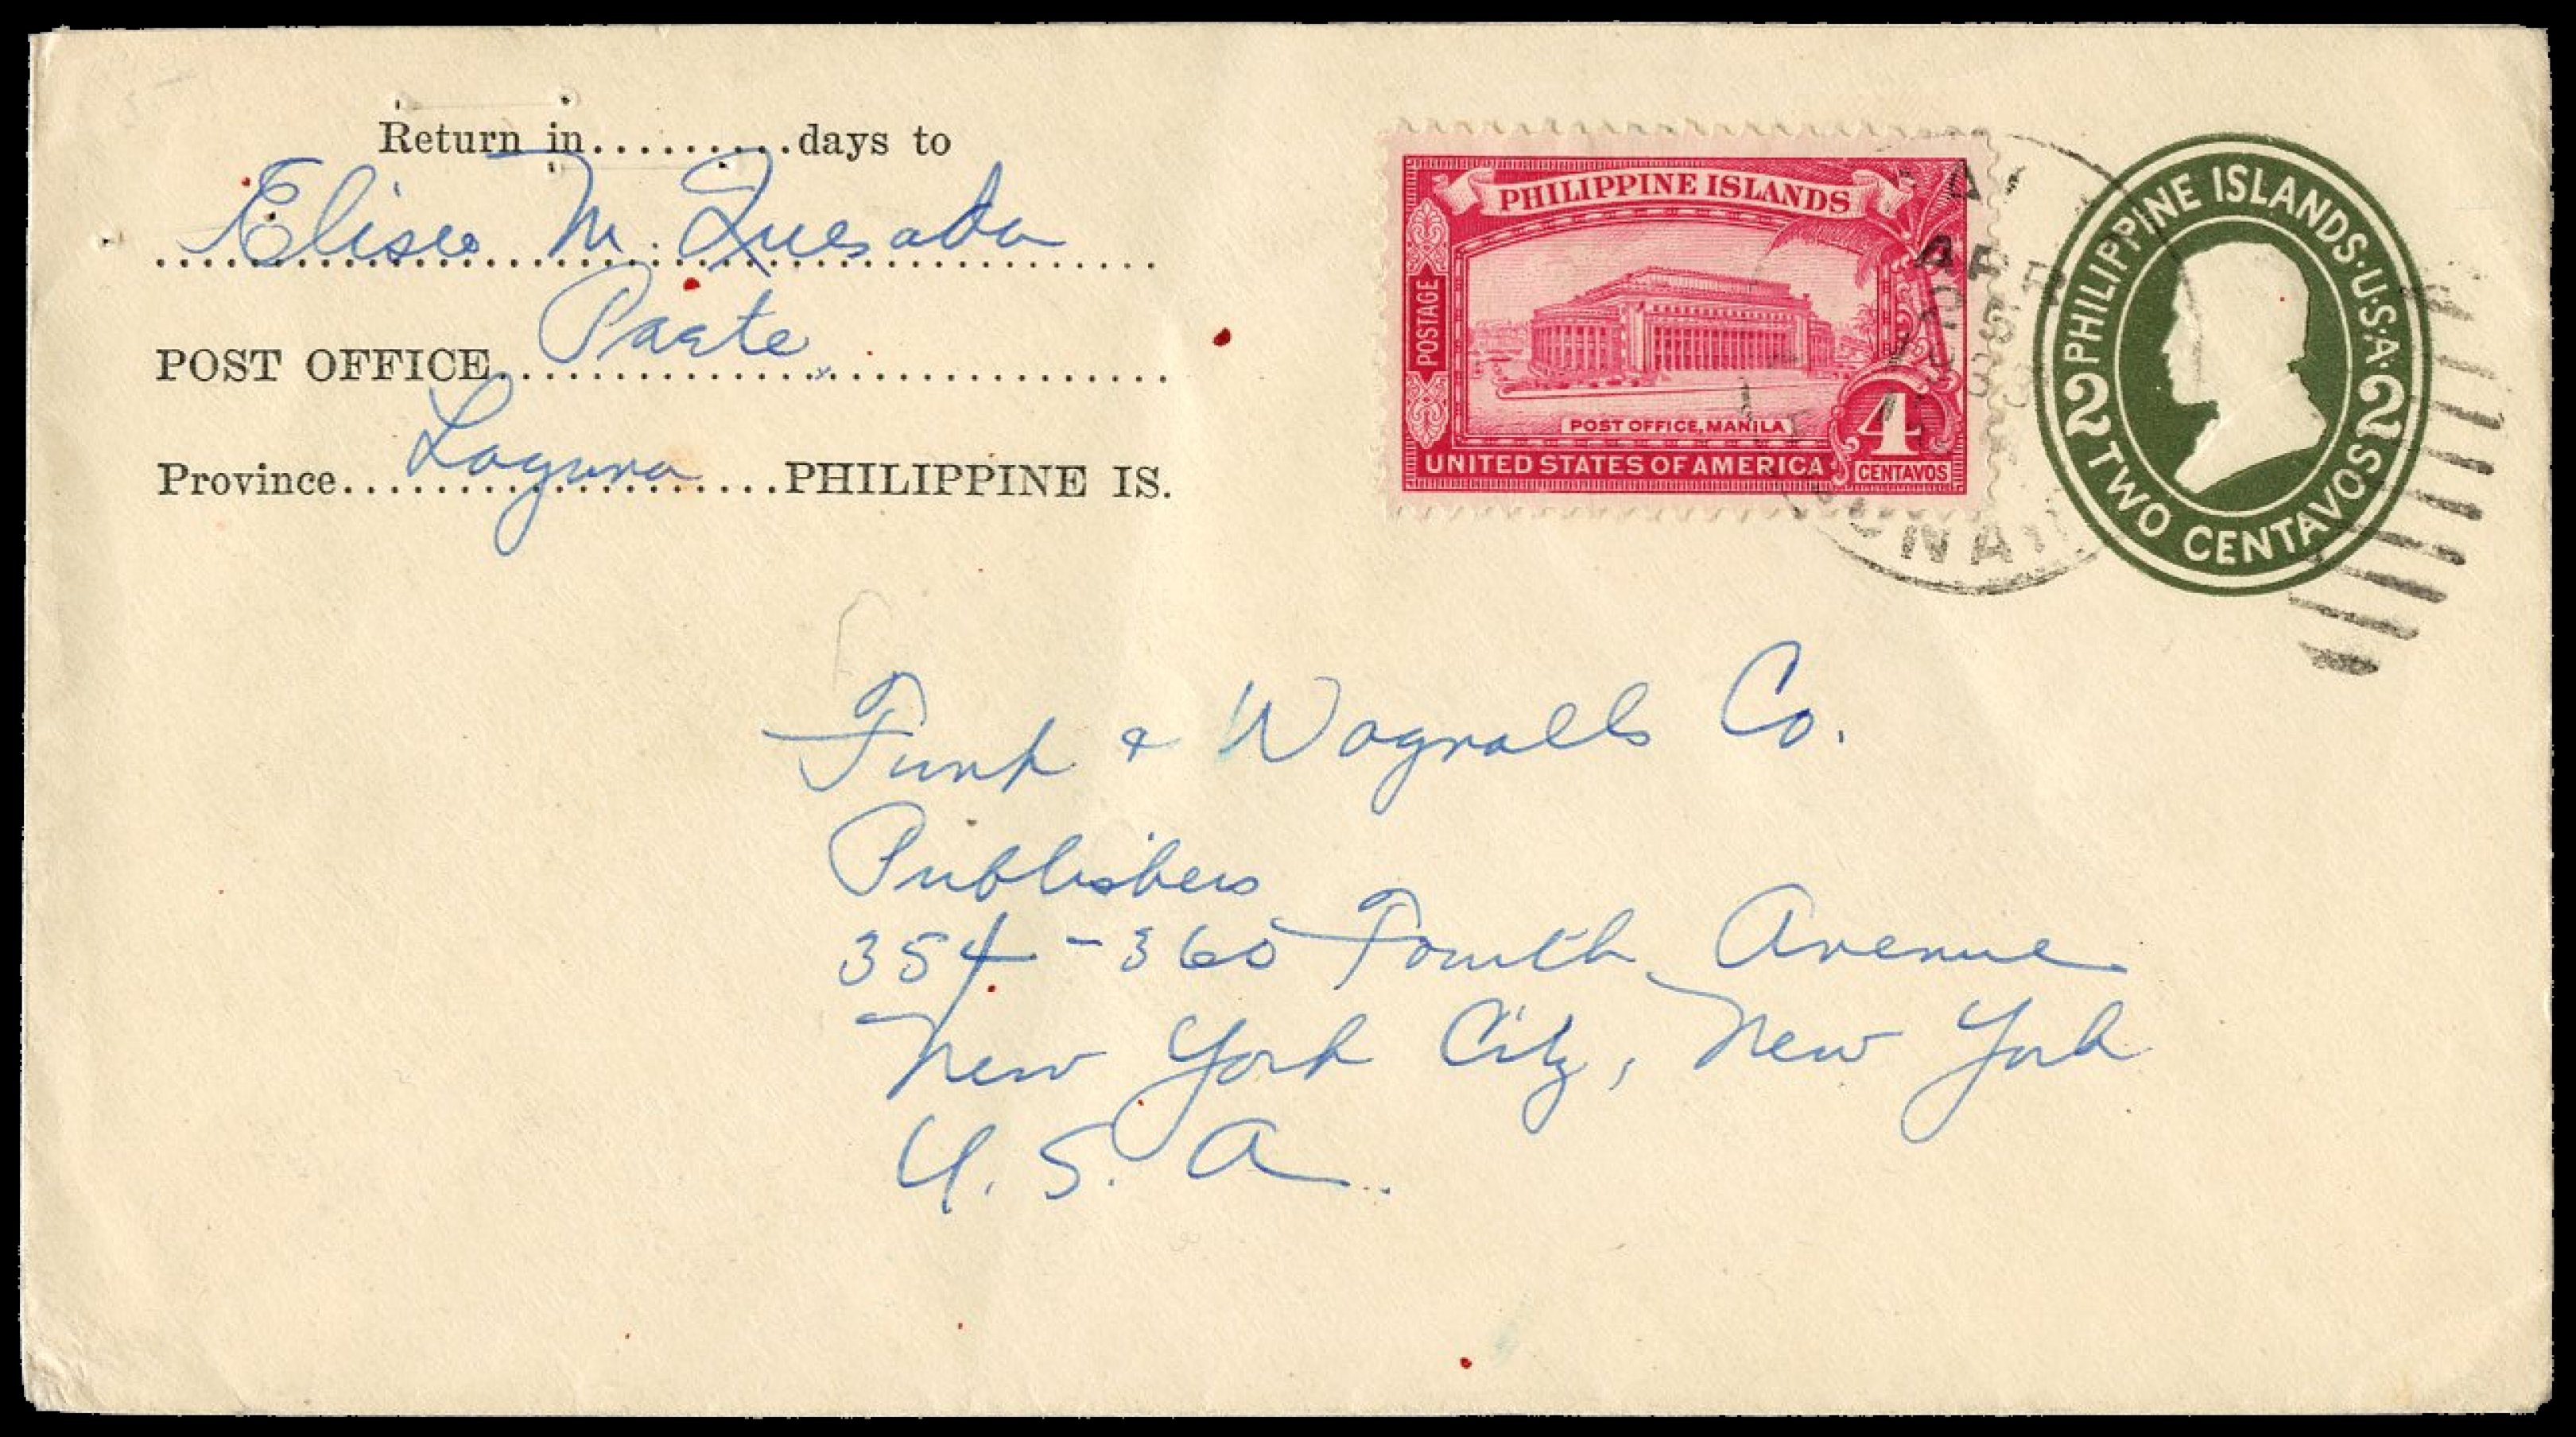 Return in.........days to
Eliseo M. Quesada
POST OFFICE Paete,
Province Laguna PHILIPPINE IS.
PHILIPPINE ISLANDS
POSTAGE
POST OFFICE, MANILA
4
UNITED STATES OF AMERICA
CENTAVOS
PHILIPPINE ISLANDS·U.S.A.
2 2
TWO CENTAVOS
APR
Funk & Wagnalls Co.
Publishers
354-360 Fourth Avenue
New York City, New York
U.S.A.